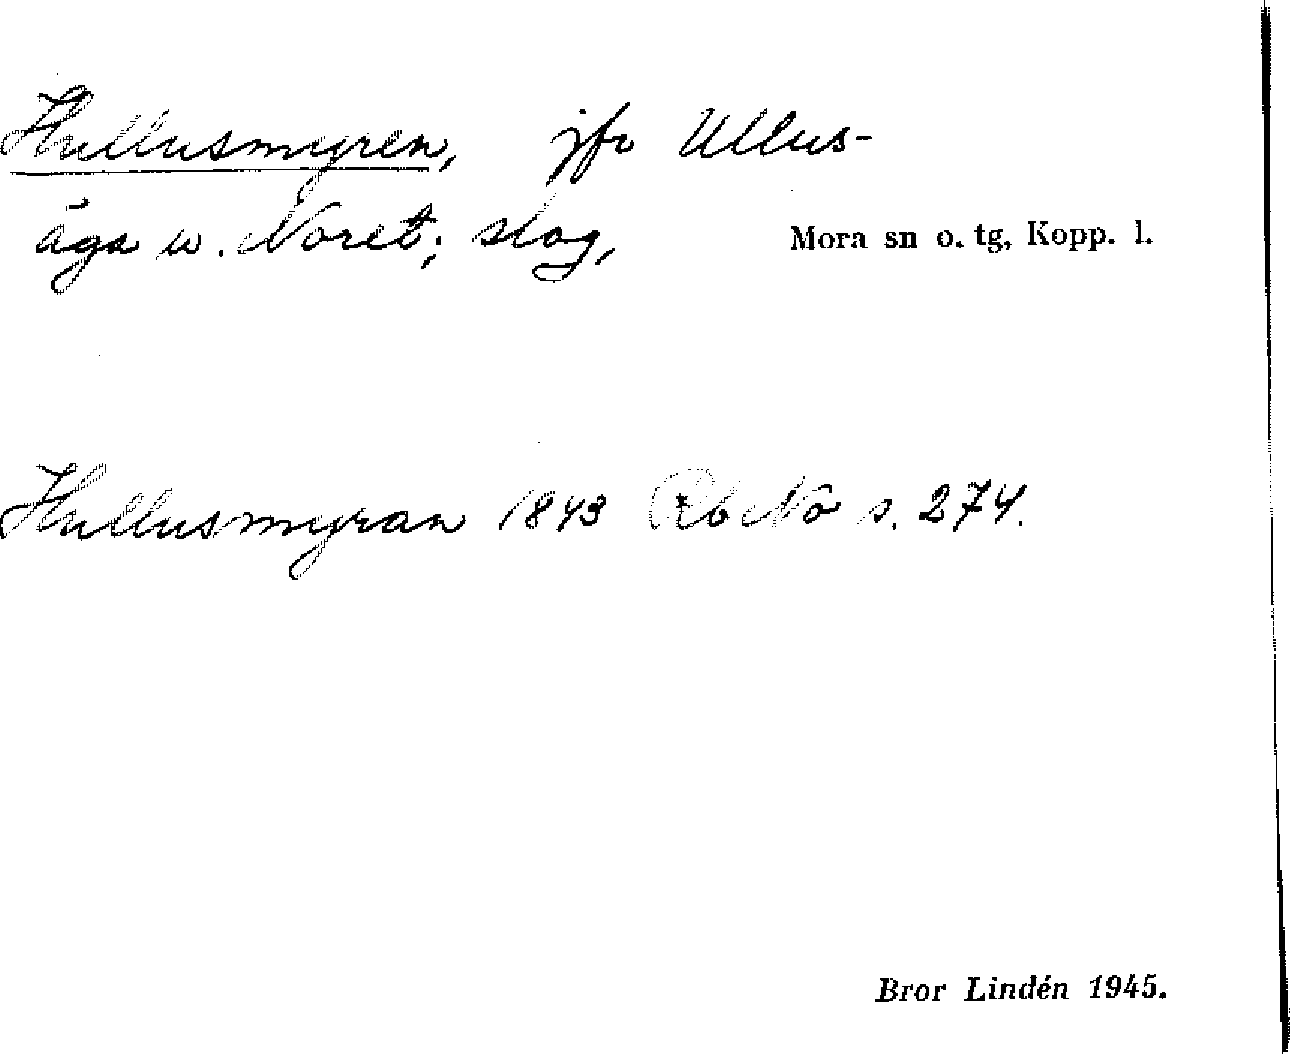 Hullusmyren, jfr Ullus-
äga w. Noret; slog,
Mora sn o. tg, Kopp. l.
Hullusmyran 1843 Rb No s. 274.
Bror Lindén 1945.